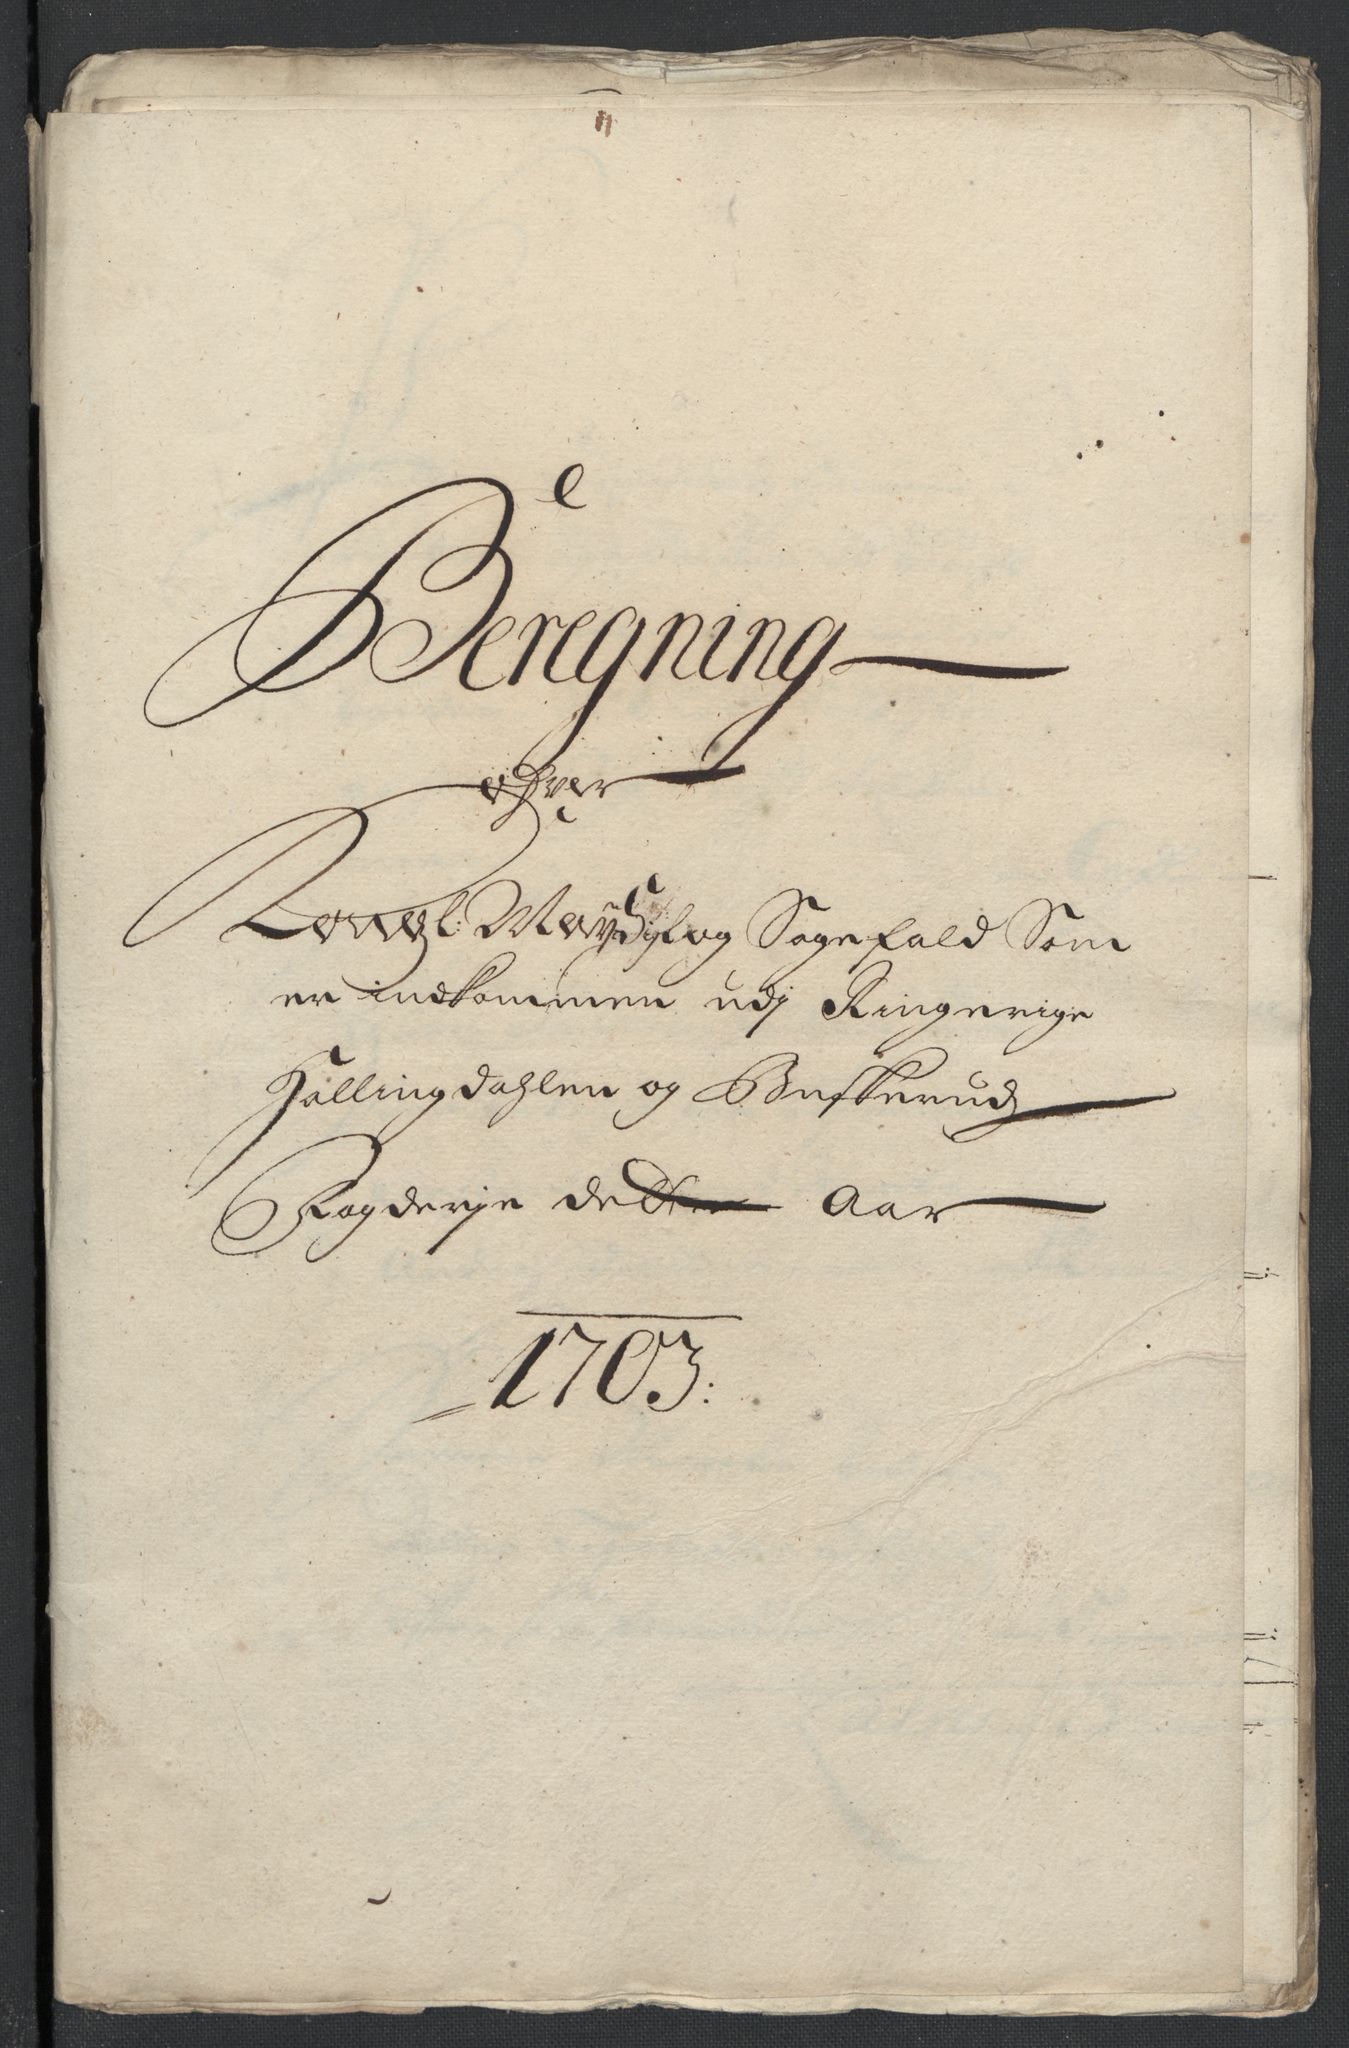 Beregning
ofver
Kongl: May: og Sagefald Som
er indkommen udj Ringerige
Hallingdahlen og Buskerud
Fogderje dette Aar
1703: